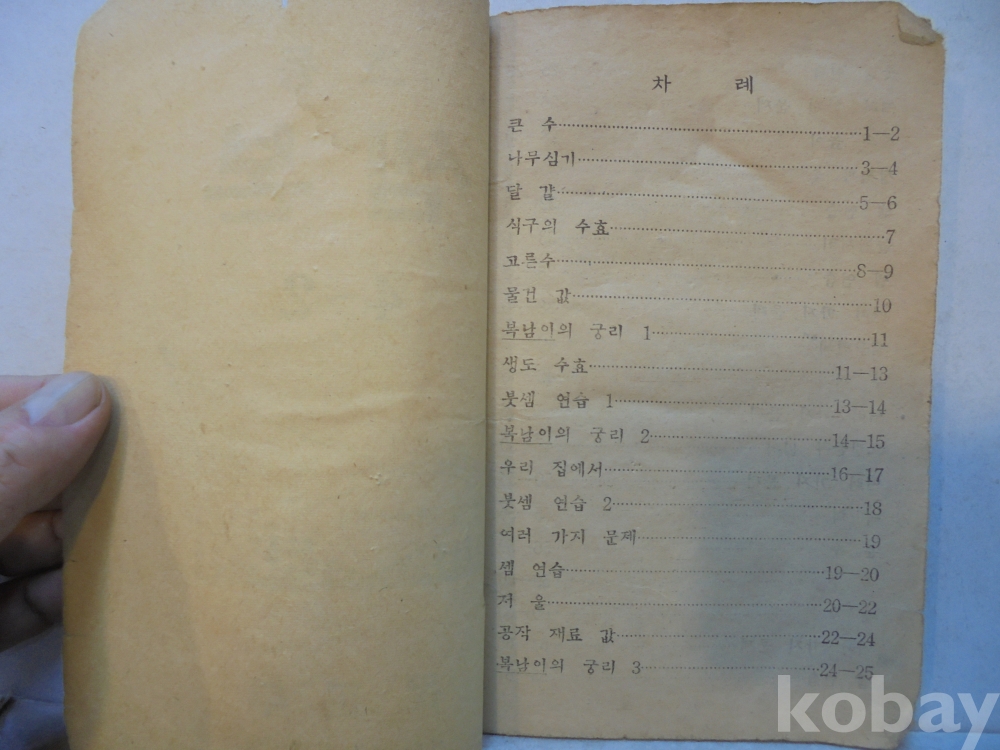 차 례
큰 수 1—2
나무심기 3—4
달 걀 5—6
식구의 수효 7
고른수 8—9
물건 값 10
복남이의 궁리 1 11
생도 수효 11—13
붓셈 연습 1 13—14
복남이의 궁리 2 14—15
우리 집에서 16—17
붓셈 연습 2 18
여러 가지 문제 19
셈 연습 19—20
저 울 20—22
공작 재료 값 22—24
복남이의 궁리 3 24—25
kobay